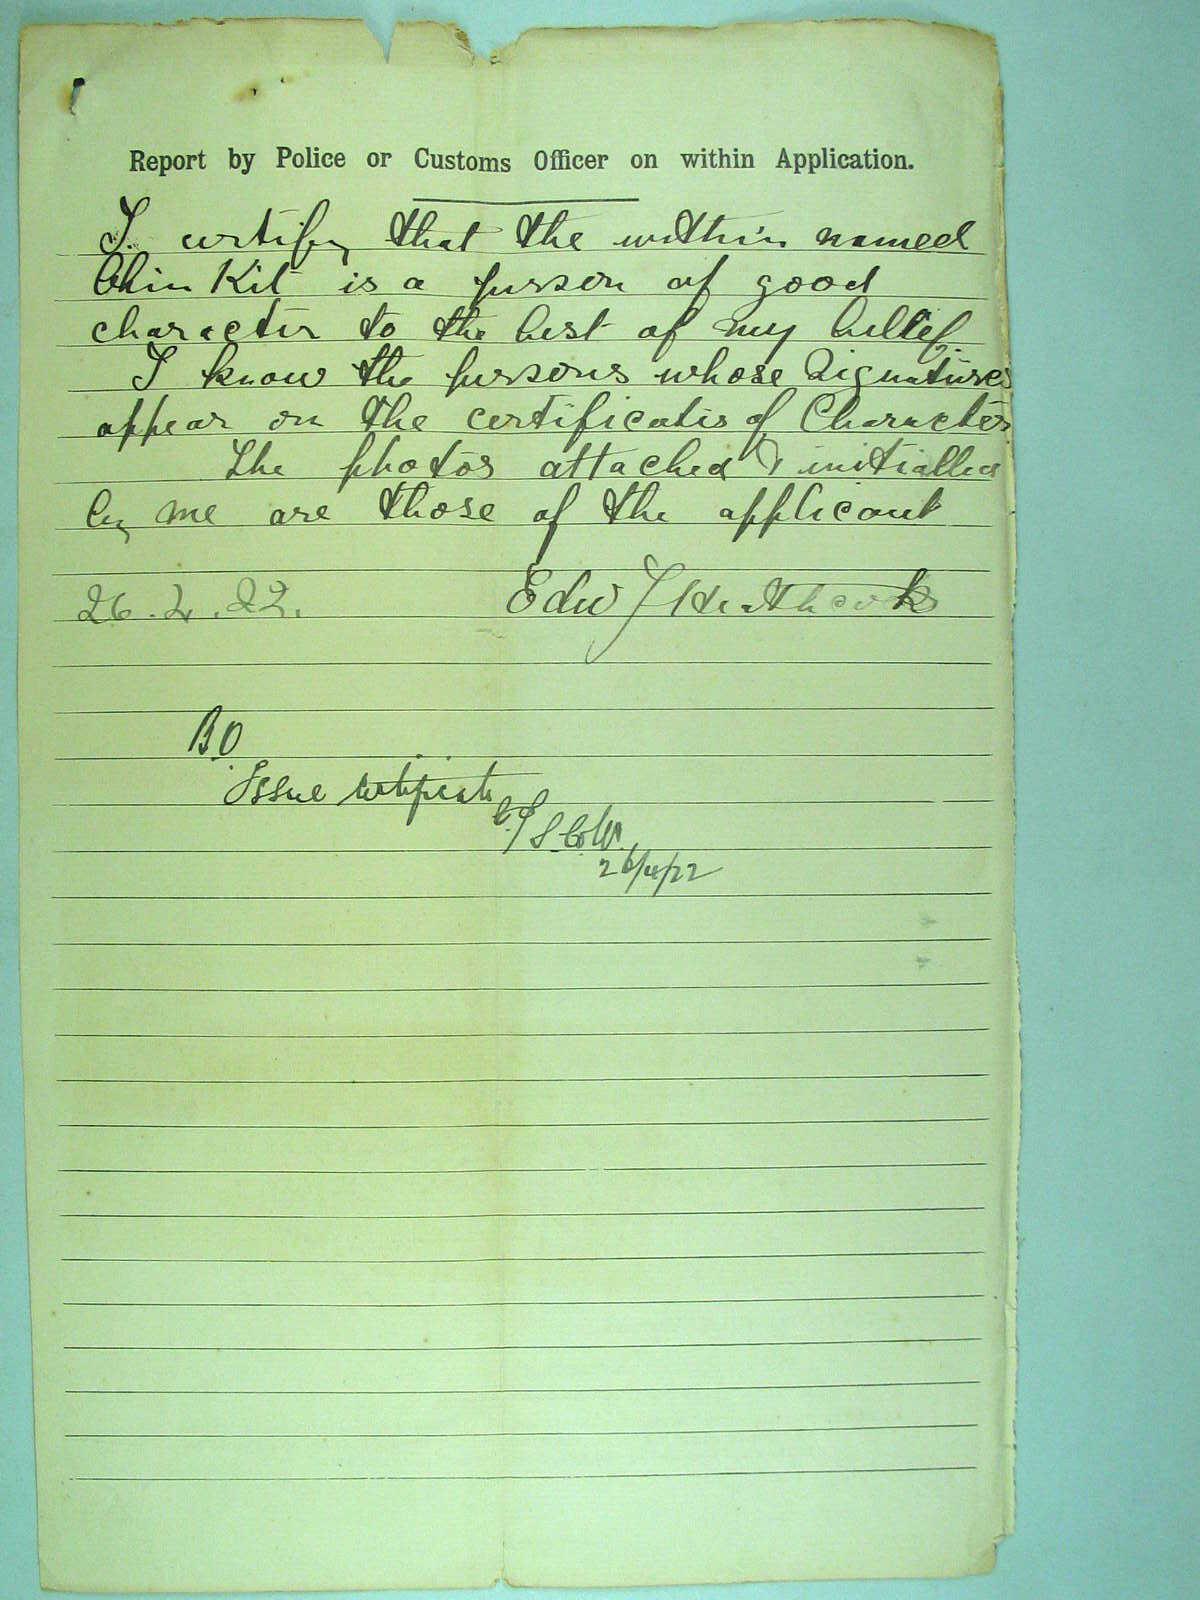 Report by Police or Customs Officer on within Application.
I certify that the within named
Chin Kit is a person of good
character to the best of my belief.
I know the persons whose signatures
appear on the certificates of Character.
The photos attached & initialled
by me are those of the applicant
26.4.22. Edw T Heathcock
BO
Issue certificate
26/4/22